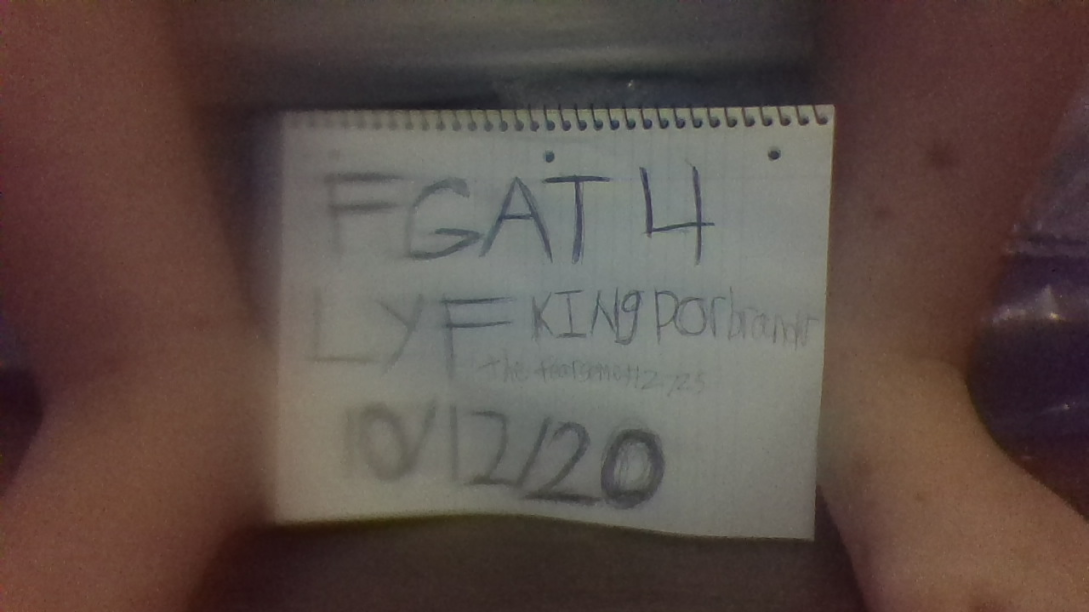 FGAT 4
LYF KINg POrbrandr
the fearsome
10/12/20